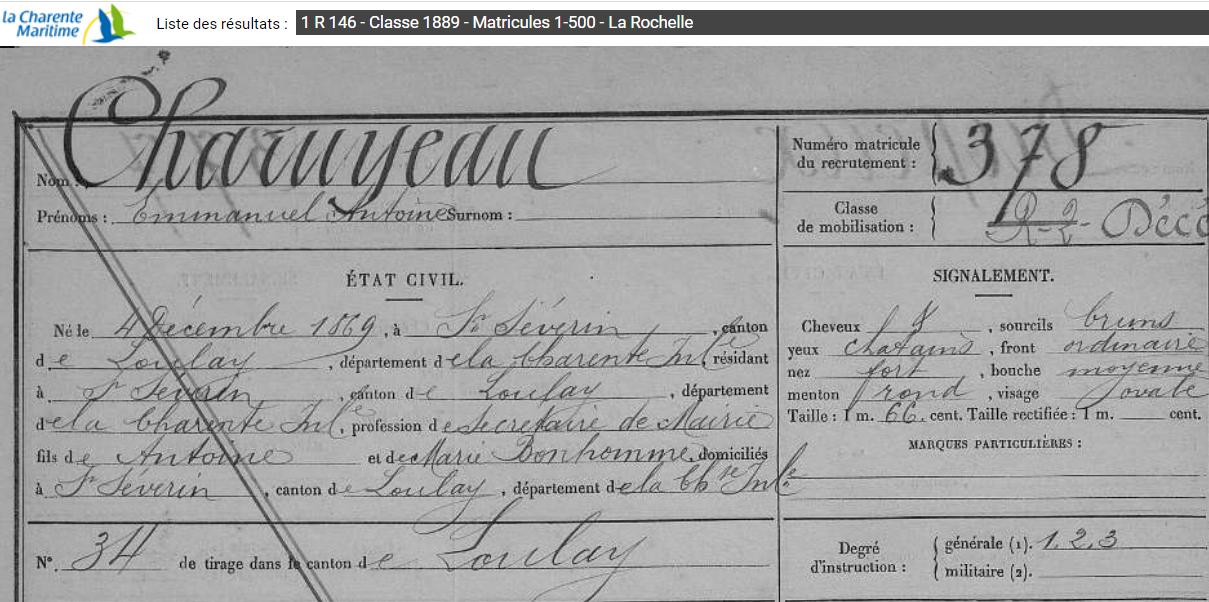 la Charente
Maritime
Liste des résultats : 1 R 146 - Classe 1889 - Matricules 1-500 - La Rochelle
Nom : Charuyeau
Prénoms : Emmanuel Antoine Surnom :
Numéro matricule
du recrutement : 378
Classe
de mobilisation : R-2- Décé
ÉTAT CIVIL.
Né le 4 Décembre 1869, à St Séverin, canton
de Loulay, département de la Charente Infre, résidant
à St Séverin, canton de Loulay, département
de la Charente Infre, profession de secrétaire de Mairie
fils de Antoine et de Marie Bonhomme, domiciliés
à St Séverin, canton de Loulay, département de la Chte Infre
N° 34 de tirage dans le canton de Loulay
SIGNALEMENT.
Cheveux, sourcils bruns
yeux chatains, front ordinaire
nez fort, bouche moyenne
menton rond, visage ovale
Taille : 1 m. 66 cent. Taille rectifiée : 1 m. cent.
MARQUES PARTICULIÈRES :
Degré
d'instruction :
générale (1). 1.2.3
militaire (2).